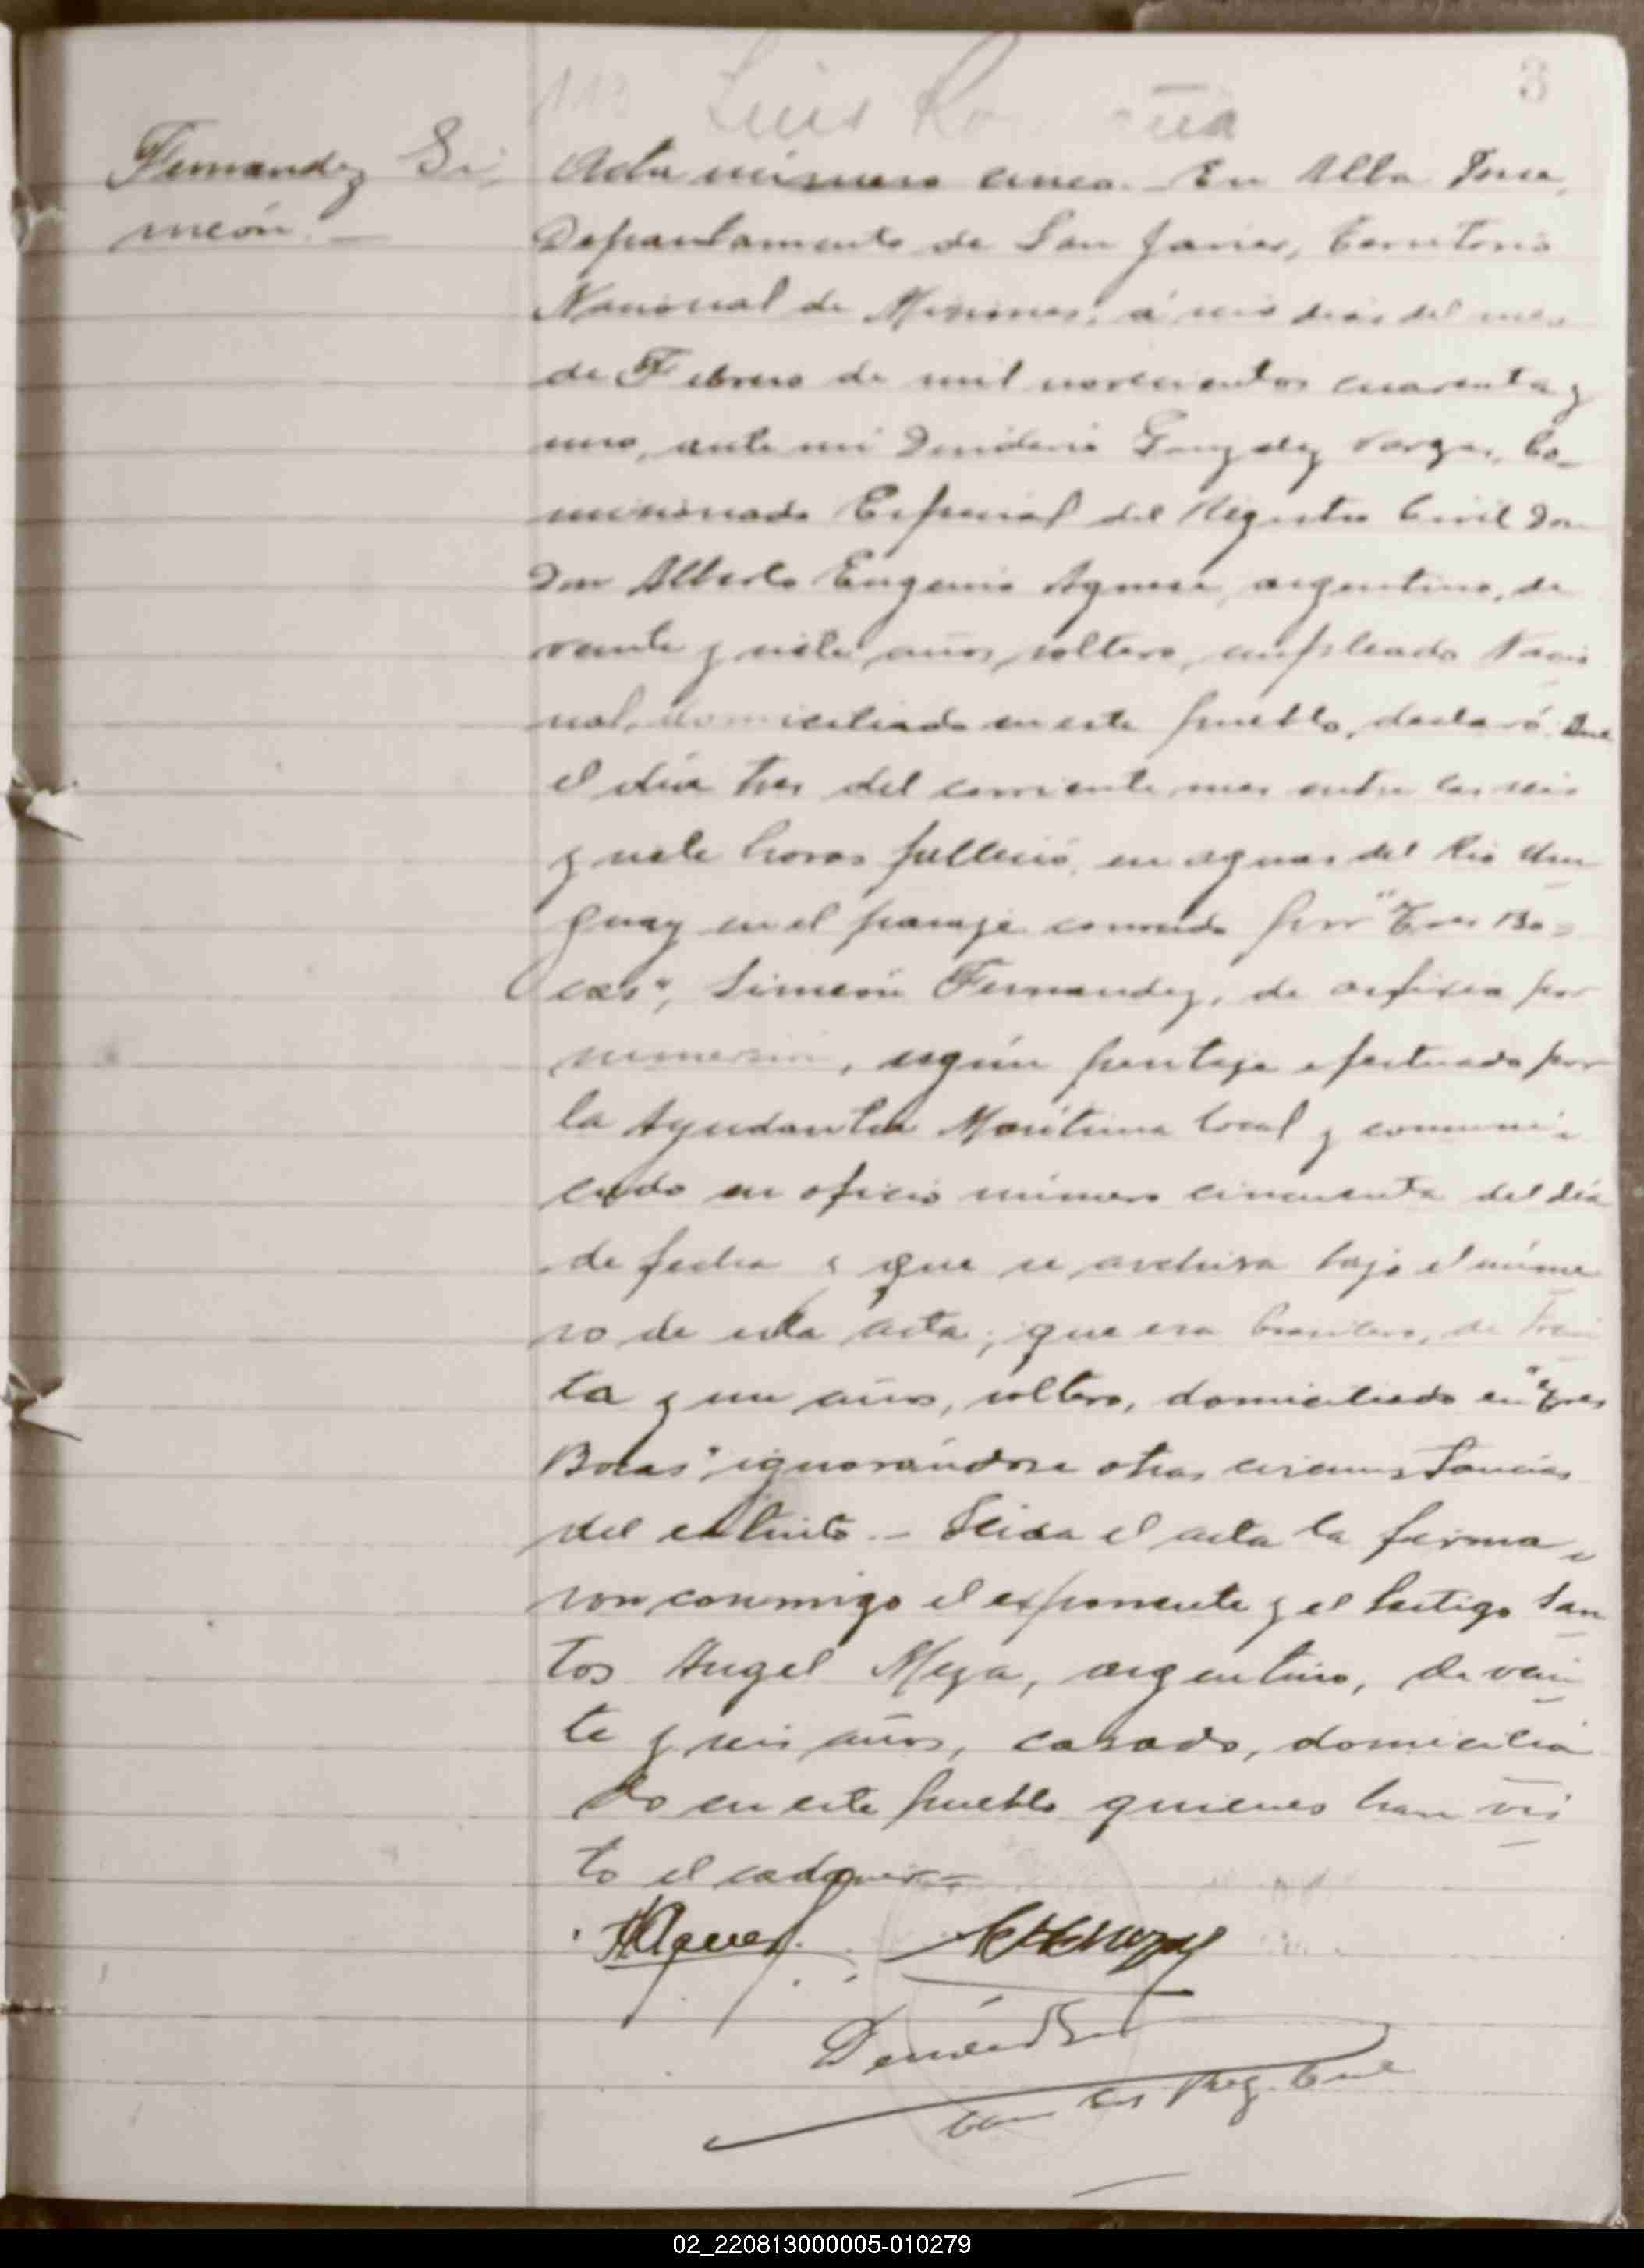 3
Luis
Fernandez Si-
meón.—
Acta número cinco.— En Alba Posse,
Departamento de San Javier, Territorio
Nacional de Misiones, á seis dias del mes
de Febrero de mil novecientos cuarenta y
uno, ante mi Desiderio Gonzalez Vargas, Co-
misionado Especial del Registro Civil Don
Don Alberto Eugenio Agnese, argentino, de
veinte y siete años, soltero, empleado Nacio
nal, domiciliado en este pueblo, declaró: Que
el dia tres del corriente mes entre las seis
y siete horas falleció, en aguas del Rio Uru
guay en el paraje conocido por "Tres Bo-
cas", Simeón Fernandez, de asfixia por
inmersión, según peritaje efectuado por
la Ayudantia Marítima local y comuni-
cado en oficio número cincuenta del dia
de fecha y que se archiva bajo el núme
ro de esta acta; que era brasilero, de trein
ta y un años, soltero, domiciliado en "Tres
Bocas" ignorándose otras circunstancias
del extinto.— Leida el acta la firma-
ron conmigo el exponente y el testigo San
tos Angel Meza, argentino, de vein
te y seis años, casado, domicilia
do en este pueblo quienes han vis
to el cadaver.—
Com Esp Reg. Civil
02_220813000005-010279